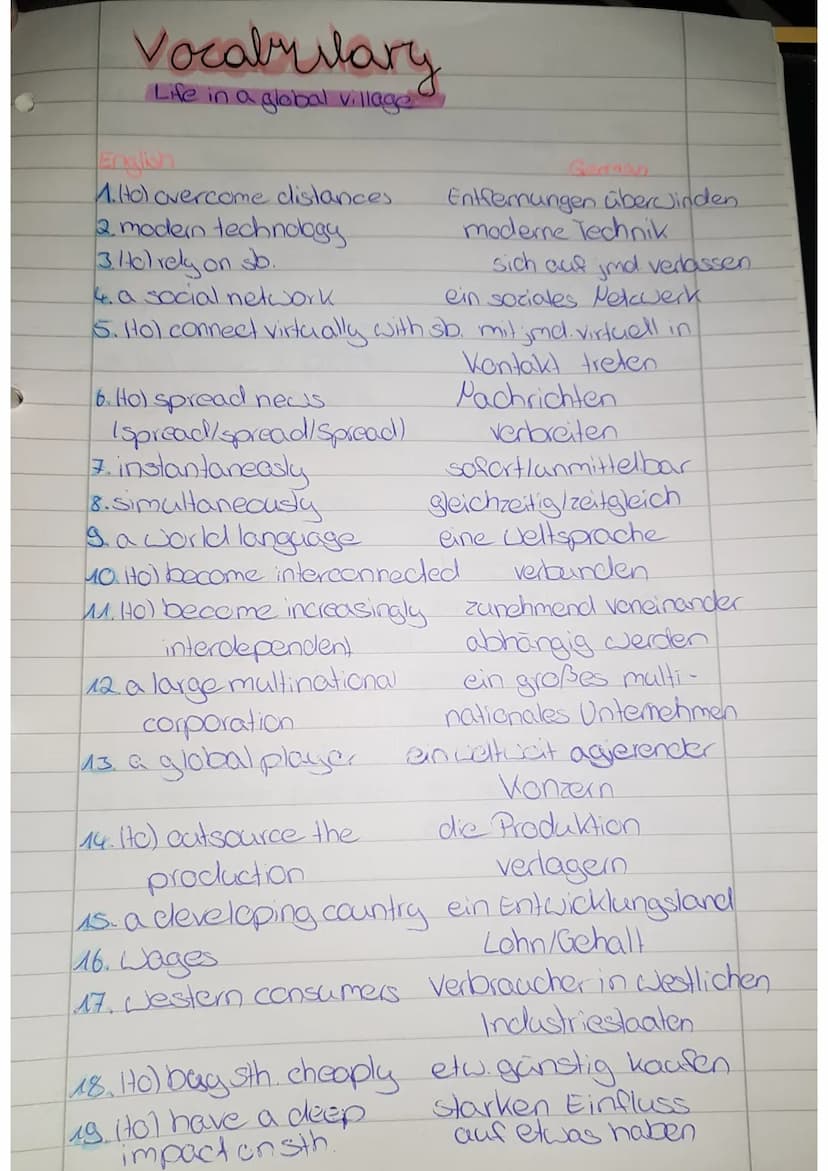 Vocabulary
Life in a global village
English German
1. (to) overcome distances Entfernungen überwinden
2. modern technology moderne Technik
3. (to) rely on sb. sich auf jmd verlassen
4. a social network ein soziales Netzwerk
5. (to) connect virtually with sb. mit jmd. virtuell in
Kontakt treten
6. (to) spread news Nachrichten
(spread/spread/spread) verbreiten
7. instantaneasly sofort/unmittelbar
8. simultaneously gleichzeitig/zeitgleich
9. a world language eine Weltsprache
10. (to) become interconnected verbunden
11. (to) become increasingly zunehmend voneinander
interdependent abhängig werden
12. a large multinational ein großes multi-
corporation nationales Unternehmen
13. a global player ein weltweit agierender
Konzern
14. (to) outsource the die Produktion
production verlagern
15. a developing country ein Entwicklungsland
16. Wages Lohn/Gehalt
17. Western consumers Verbraucher in westlichen
Industriestaaten
18. (to) buy sth. cheaply etw. günstig kaufen
19. (to) have a deep starken Einfluss
impact on sth. auf etwas haben